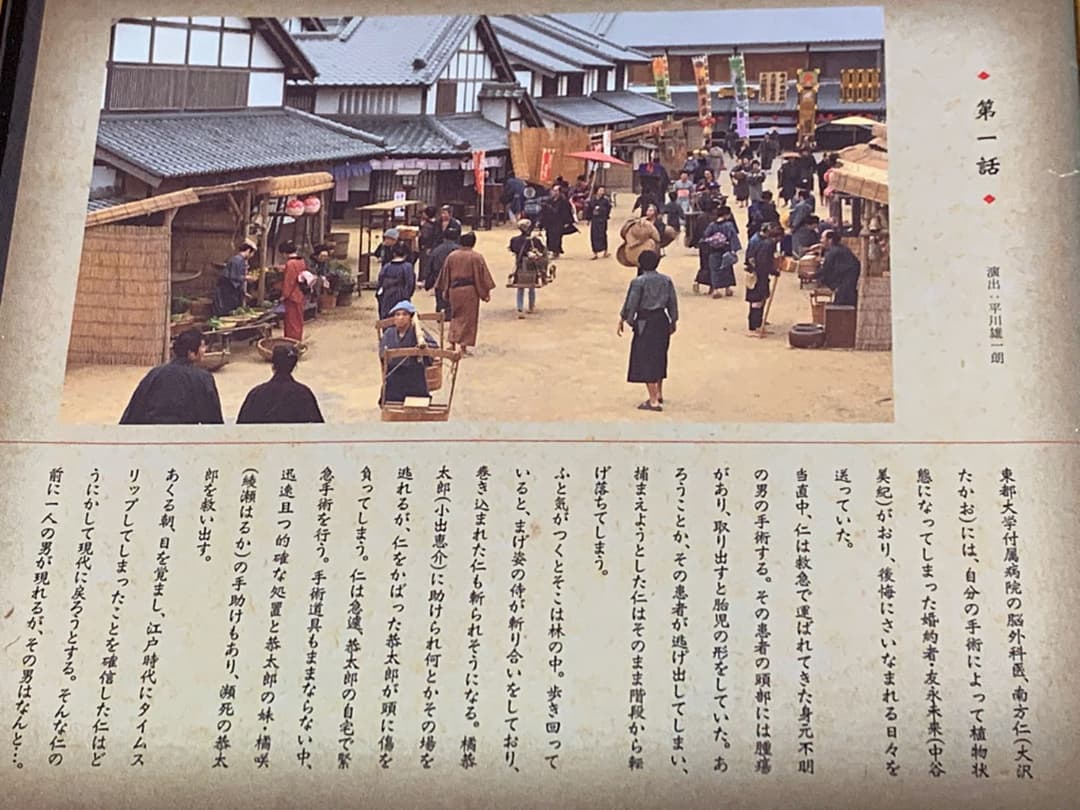 第一話
演出:平川雄一朗
東都大学付属病院の脳外科医、南方仁(大沢
たかお)には、自分の手術によって植物状
態になってしまった婚約者・友永未来(中谷
美紀)がおり、後悔にさいなまれる日々を
送っていた。
当直中、仁は救急で運ばれてきた身元不明
の男の手術する。その患者の頭部には腫瘍
があり、取り出すと胎児の形をしていた。あ
ろうことか、その患者が逃げ出してしまい、
捕まえようとした仁はそのまま階段から転
げ落ちてしまう。
ふと気がつくとそこは林の中。歩き回って
いると、まげ姿の侍が斬り合いをしており、
巻き込まれた仁も斬られそうになる。橘恭
太郎(小出恵介)に助けられ何とかその場を
逃れるが、仁をかばった恭太郎が頭に傷を
負ってしまう。仁は急遽、恭太郎の自宅で緊
急手術を行う。手術道具もままならない中、
迅速且つ的確な処置と恭太郎の妹・橘咲
(綾瀬はるか)の手助けもあり、瀕死の恭太
郎を救い出す。
あくる朝、目を覚まし、江戸時代にタイムス
リップしてしまったことを確信した仁はど
うにかして現代に戻ろうとする。そんな仁の
前に一人の男が現れるが、その男はなんと…。